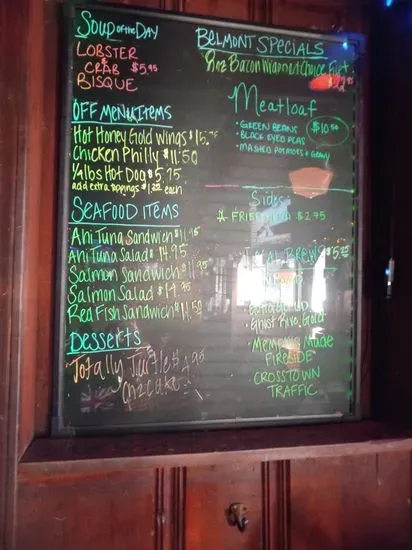 Soup of the Day
LOBSTER
&
CRAB $5.95
BISQUE
OFF MENU ITEMS
Hot Honey Gold wings $15.75
Chicken Philly $11.50
1/4 lbs Hot Dog $5.75
add extra toppings $1.00 each
SEAFOOD ITEMS
Ahi Tuna Sandwich $11.95
Ahi Tuna Salad $14.95
Salmon Sandwich $11.95
Salmon Salad $14.95
Red Fish Sandwich $11.50
DESSERTS
Totally Turtle $4.95
BELMONT SPECIALS
8oz Bacon Wrapped Choice Filet
Meatloaf $10.50
• GREEN BEANS
• BLACK EYED PEAS
• MASHED POTATOES & GRAVY
Sides
FRIED $2.75
LOCAL BREWS $5.25
• Ghost River Gold
• MEMPHIS MADE
FIRESIDE
• CROSSTOWN
TRAFFIC